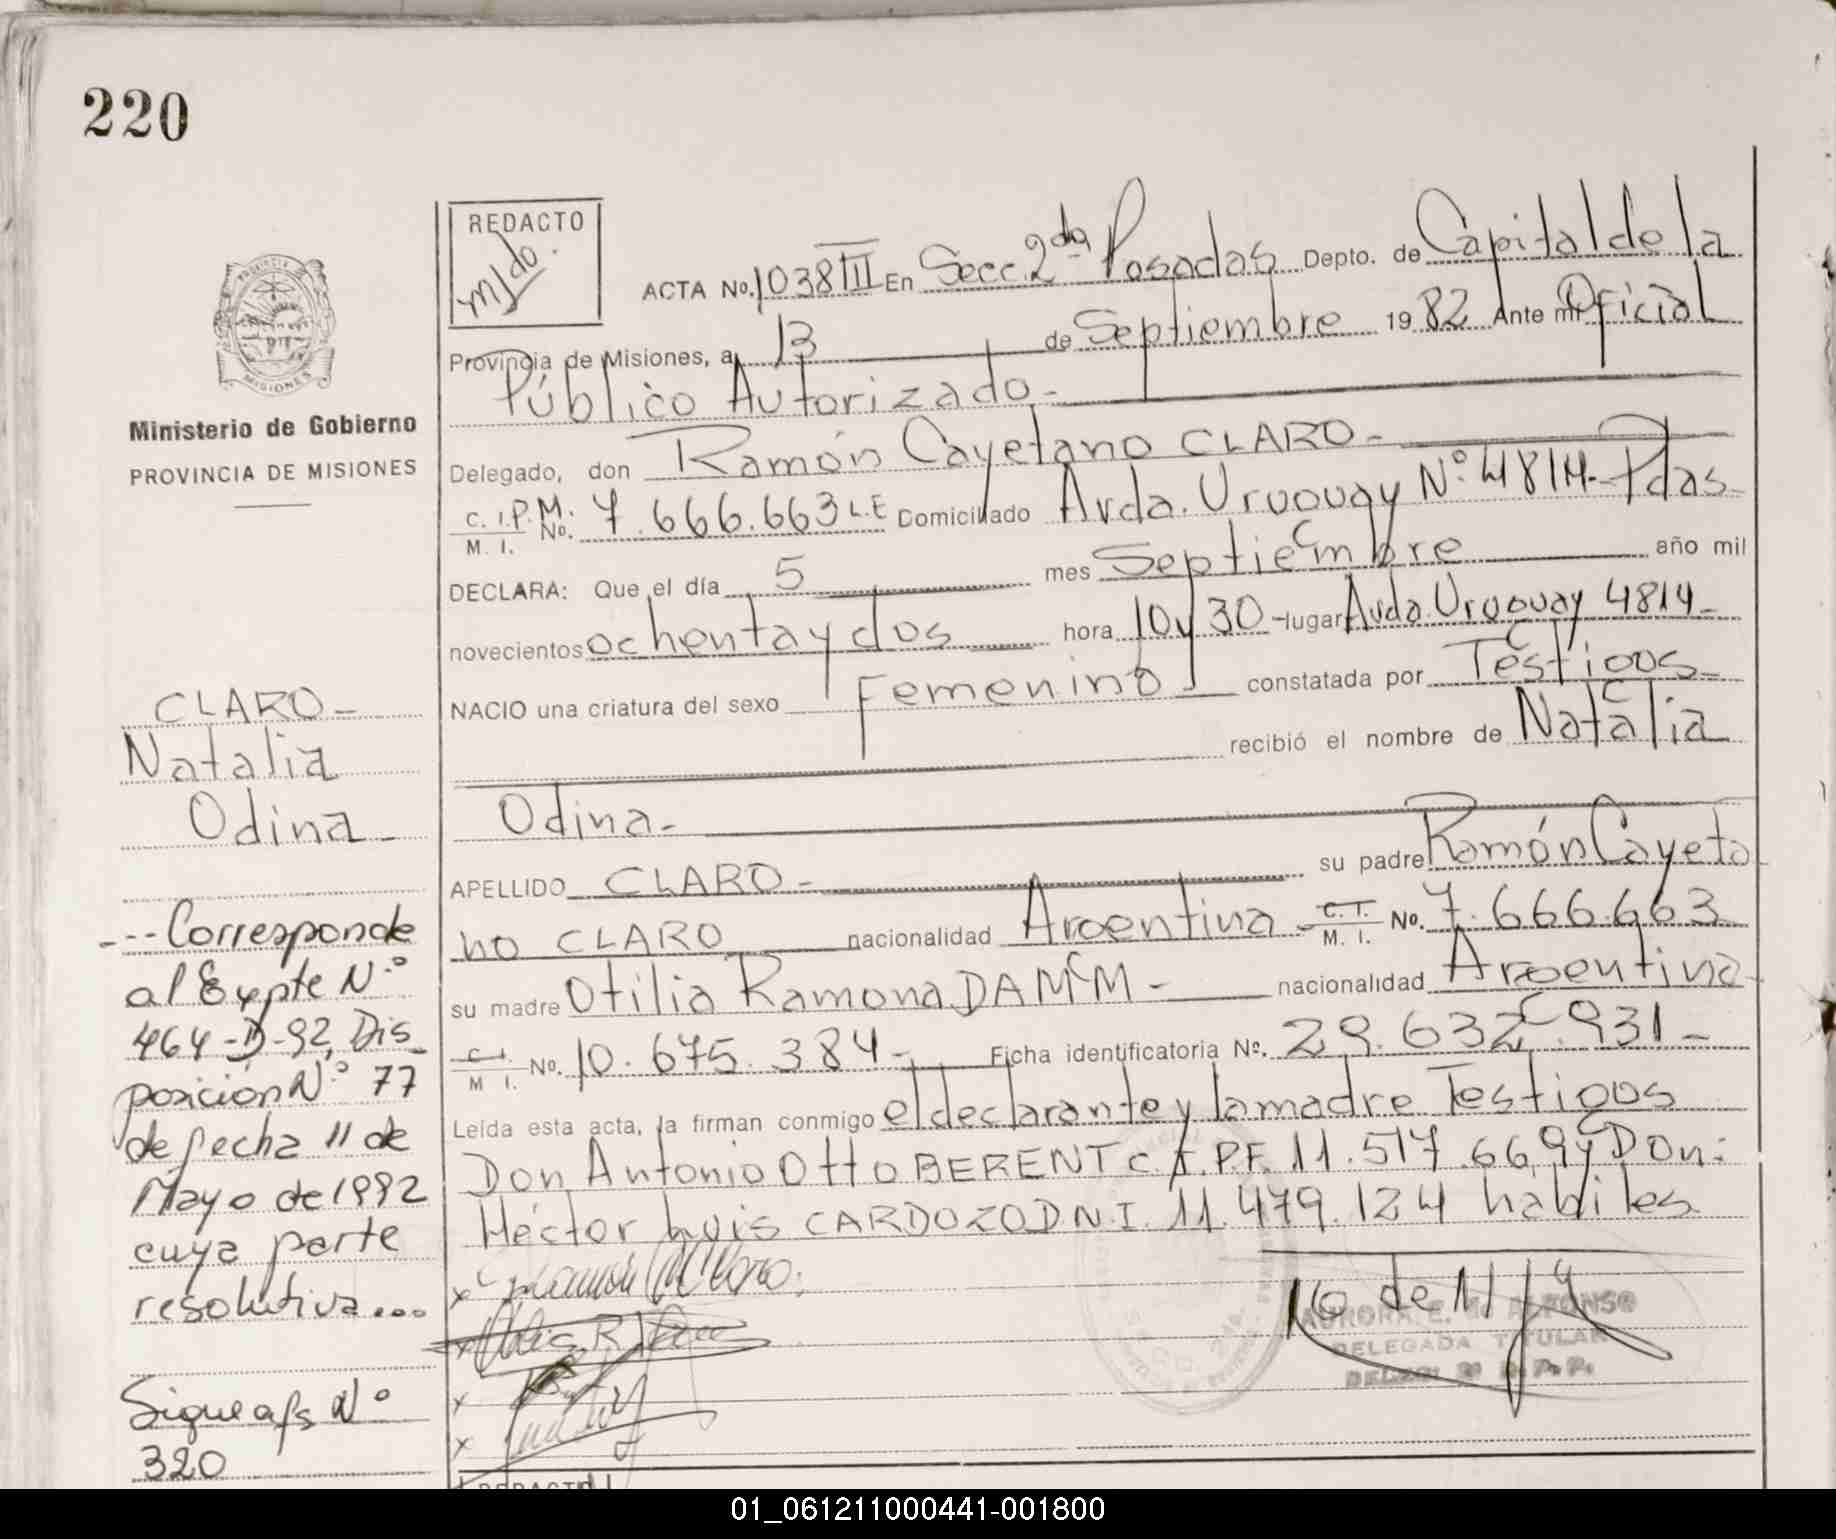 220
REDACTO
mjdo.
ACTA No. 1038 III En Secc. 2da Posadas Depto. de Capital de la
Provincia de Misiones, a 13 de Septiembre 1982 Ante mi Oficial
Público Autorizado.-
Delegado, don Ramón Cayetano CLARO.-
C. I.P.M. No. 7.666.663 L.E Domiciliado Avda. Uruguay N° 4814.- Pdas.-
M. I.
DECLARA: Que el día 5 mes Septiembre año mil
novecientos ochenta y dos hora 10 y 30 - lugar Avda. Uruguay 4814.-
NACIO una criatura del sexo Femenino constatada por Testigos.-
recibió el nombre de Natalia
Odina.-
APELLIDO CLARO.- su padre Ramón Cayeta
no CLARO nacionalidad Argentina C. I. M. I. No. 7.666.663
su madre Otilia Ramona DAMM - nacionalidad Argentina-
C. I. M I. No. 10.675.384.- Ficha identificatoria No. 29.632.931-
Leída esta acta, la firman conmigo el declarante y la madre Testigos
Don Antonio Otto BERENT C.I.P.F. 11.517.669 y Don:
Héctor Luis CARDOZO D.N.I. 11.479.124 habiles
x
x
x
x
AURORA E. M. ALFONSO
DELEGADA TITULAR
Ministerio de Gobierno
PROVINCIA DE MISIONES
CLARO-
Natalia
Odina-
---Corresponde
al Expte N.°
464-D-92, Dis_
posición N.° 77
de fecha 11 de
Mayo de 1992
cuya parte
resolutiva...
Sigue afs N°
320
01_061211000441-001800